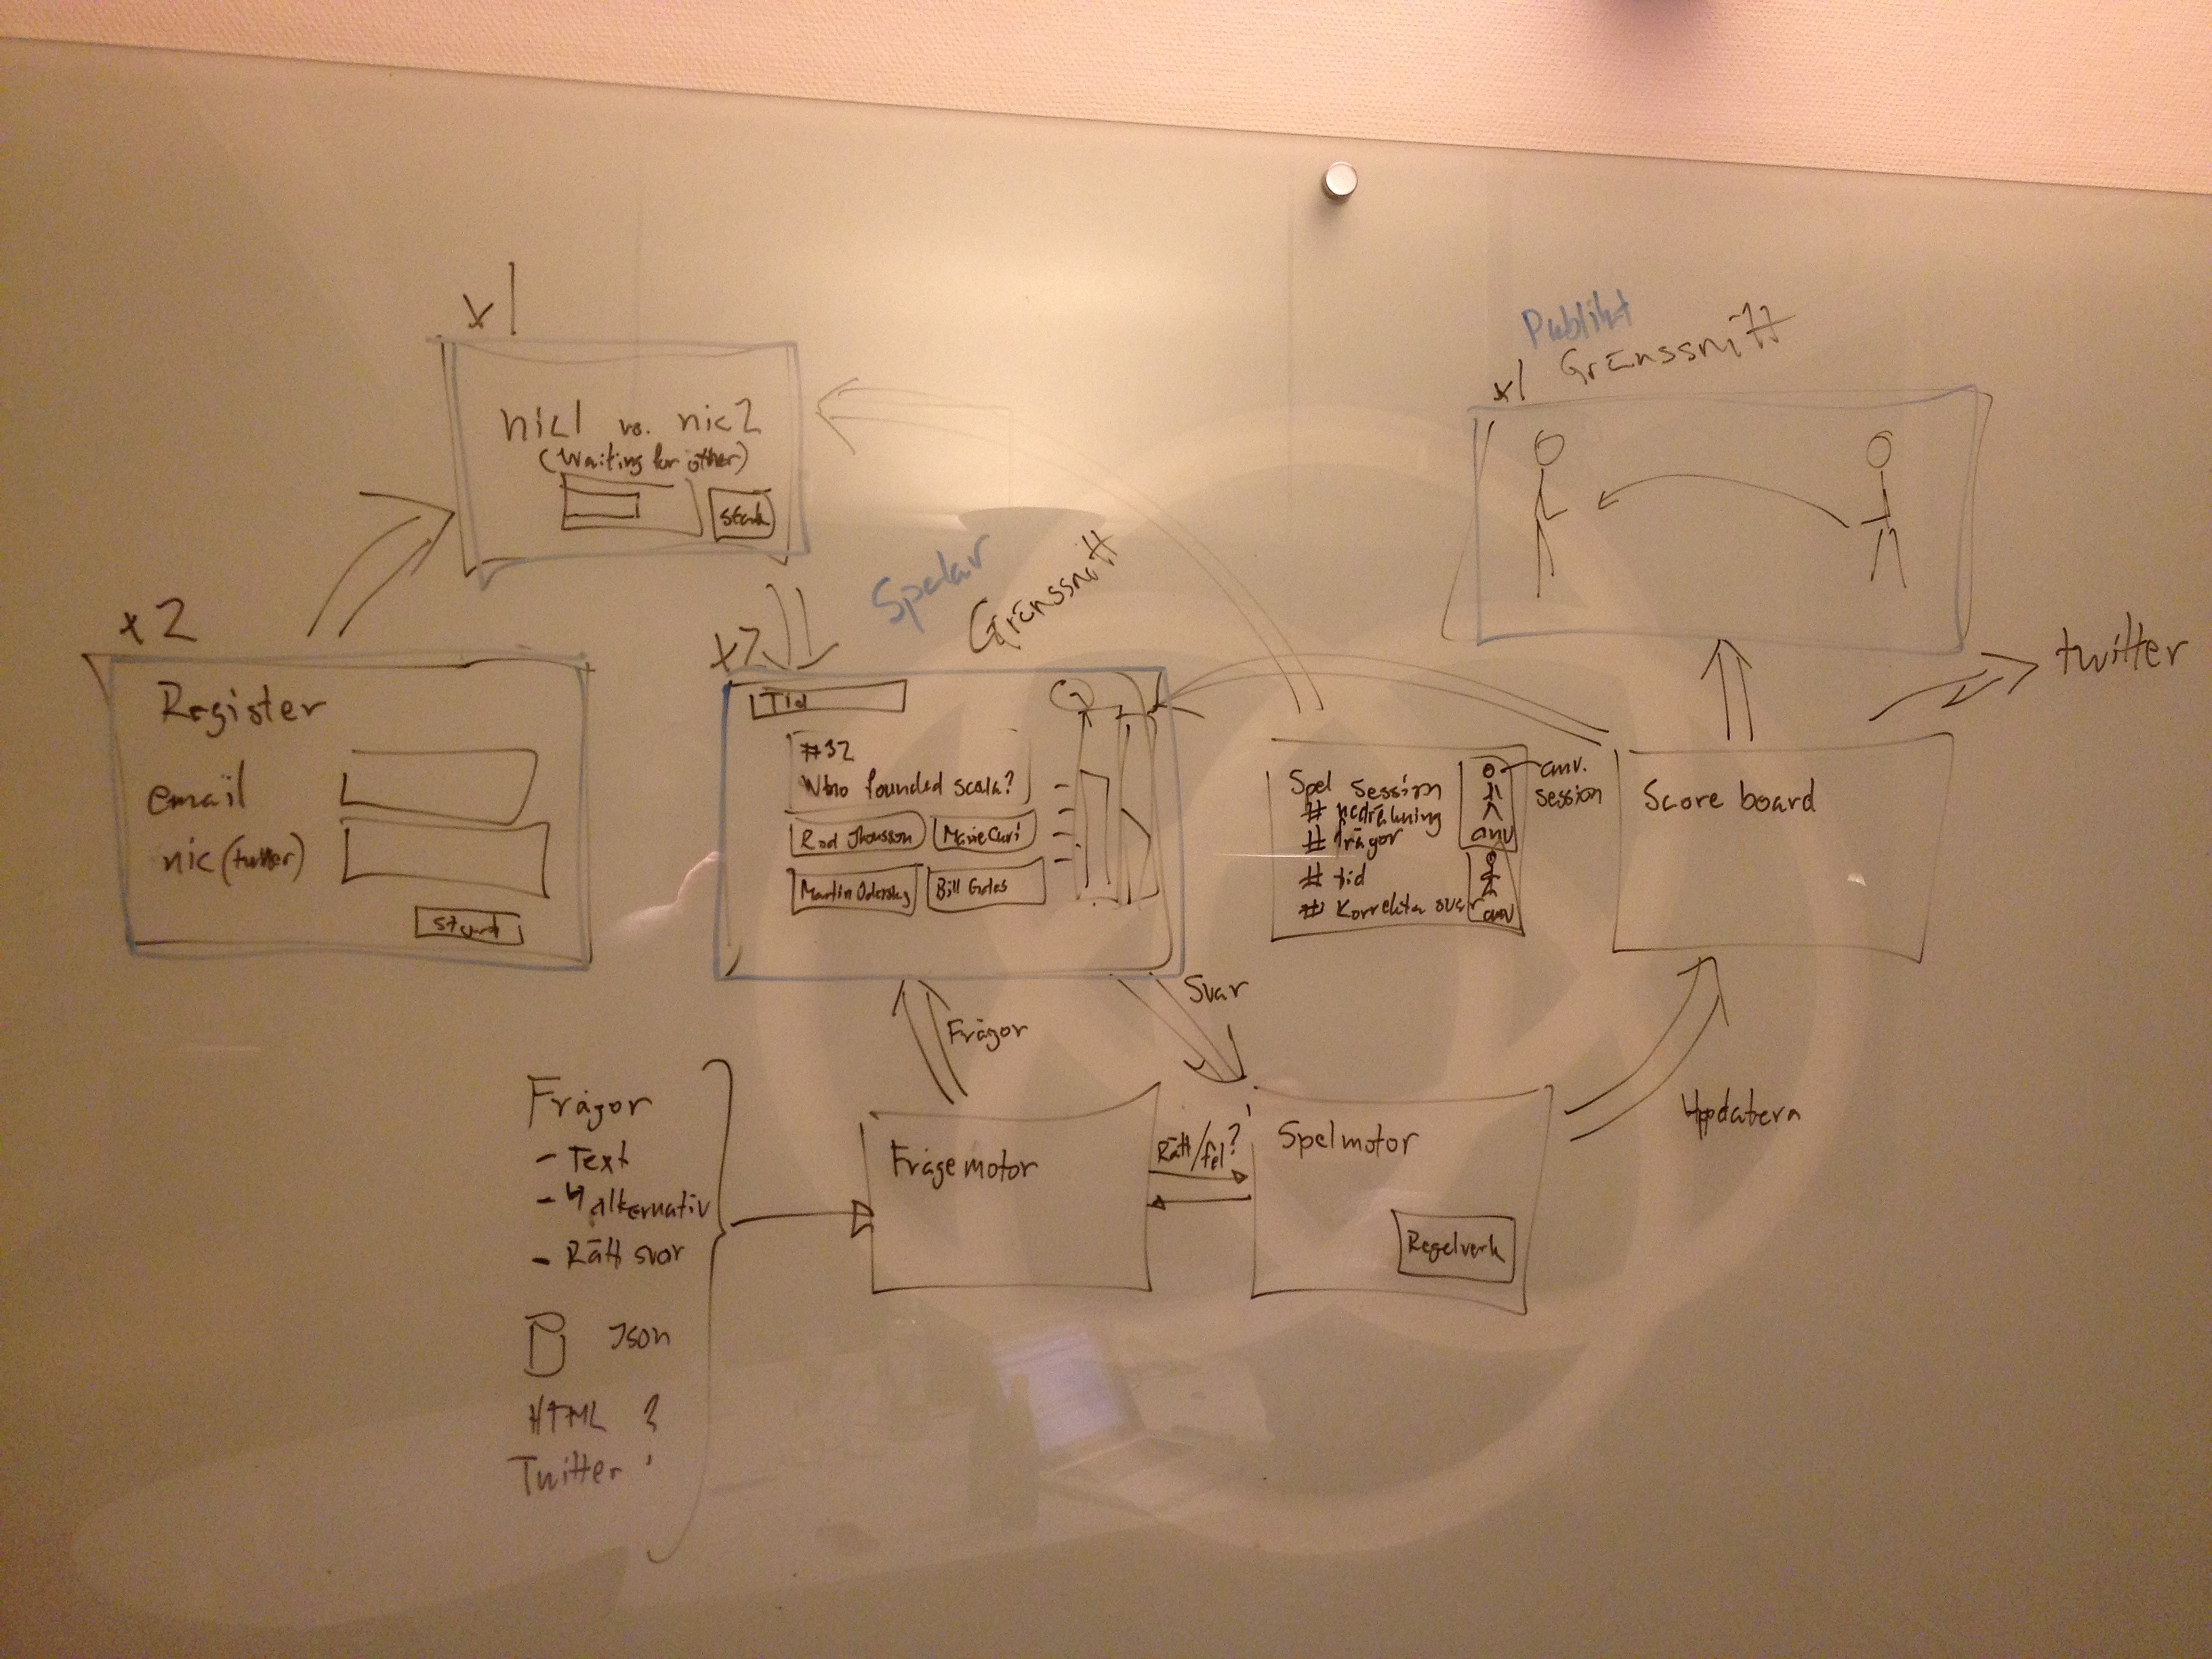 x1
nic1 vs. nic2
(Waiting for other)
x2
Register
email
nic (twitter)
Start
Spelar
Gränssnitt
x2
Tid
#32
Who founded scala?
Rod Jhonsson
Marie Curi
Martin Odersky
Bill Gates
Publikt
Gränssnitt
x1
twitter
Spel Session
# nedräkning
# frågor
# tid
# Korrekta svar
anv
anv
anv.
session
Score board
Frågor
Svar
Uppdatera
Frågor
- Text
- 4 alternativ
- Rätt svar
Json
HTML ?
Twitter
Frågemotor
Rätt/fel?
Spelmotor
Regelverk